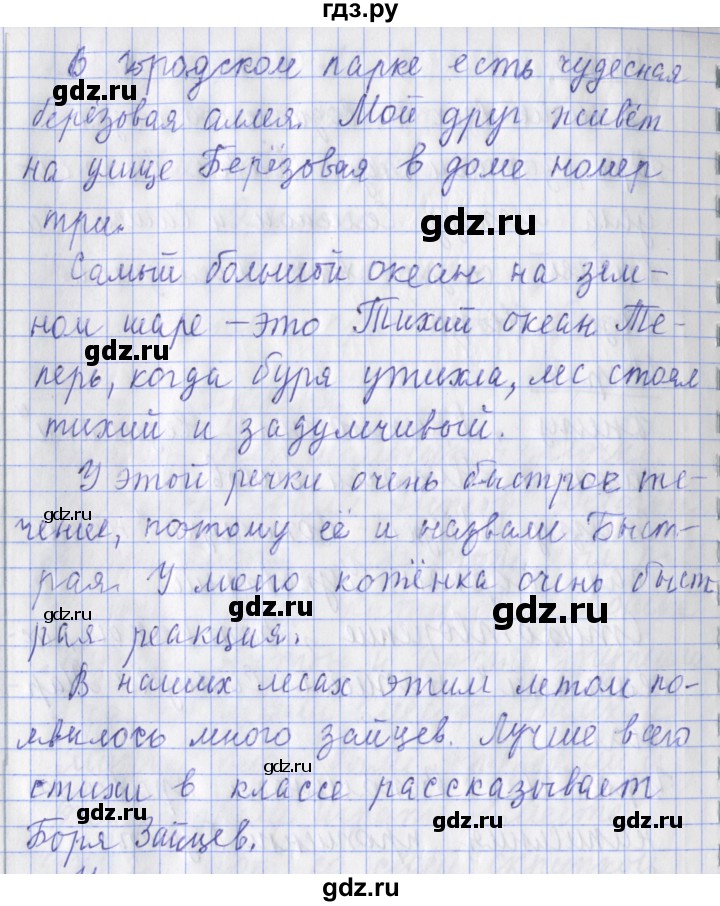 гдз.ру
В городском парке есть чудесная
gdz.ru
берёзовая аллея. Мой друг живёт
на улице Берёзовая в доме номер
gdz.ru
три.
Самый большой океан на зем-
ном шаре – это Тихий океан Те-
gdz.ru
перь, когда буря утихла, лес стоял
gdz.ru
тихий и задумчивый.
У этой речки очень быстрое те-
gdz.ru
чение, поэтому её и назвали Быст-
рая. У моего котёнка очень быст
gdz.ru
gdz.ru
gdz.ru
рая реакция.
В наших лесах этим летом по-
явилось много зайцев. Лучше всего
gdz.ru
стихи в классе рассказывает
gdz.ru
gdz.ru
gdz.ru
Боря Зайцев.
gdz.ru